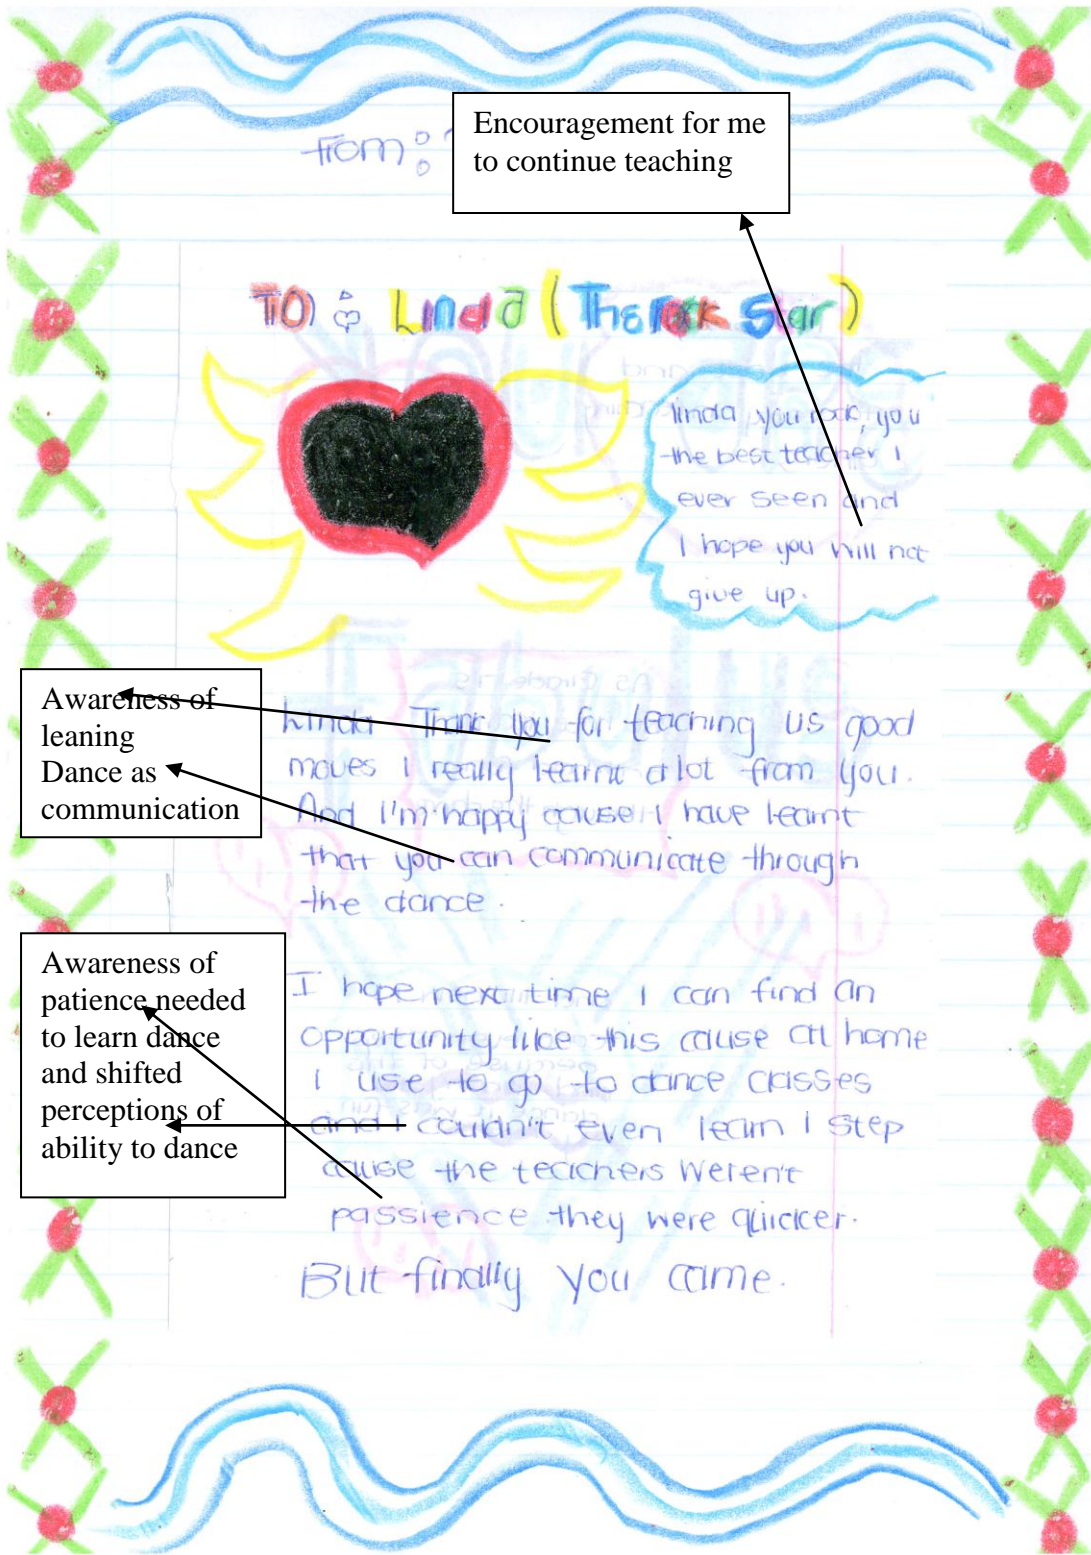 from:
Encouragement for me
to continue teaching
TO: Linda (The rock Star)
linda you rock, you
the best teacher I
ever seen and
I hope you will not
give up.
Awareness of
leaning
Dance as
communication
Linda Thank you for teaching us good
moves I really learnt alot from you.
And I'm happy cause I have learnt
that you can communicate through
the dance.
Awareness of
patience needed
to learn dance
and shifted
perceptions of
ability to dance
I hope next time I can find an
opportunity like this cause at home
I use to go to dance classes
and I couldn't even learn 1 step
cause the teachers weren't
passience they were quicker.
But finally you came.